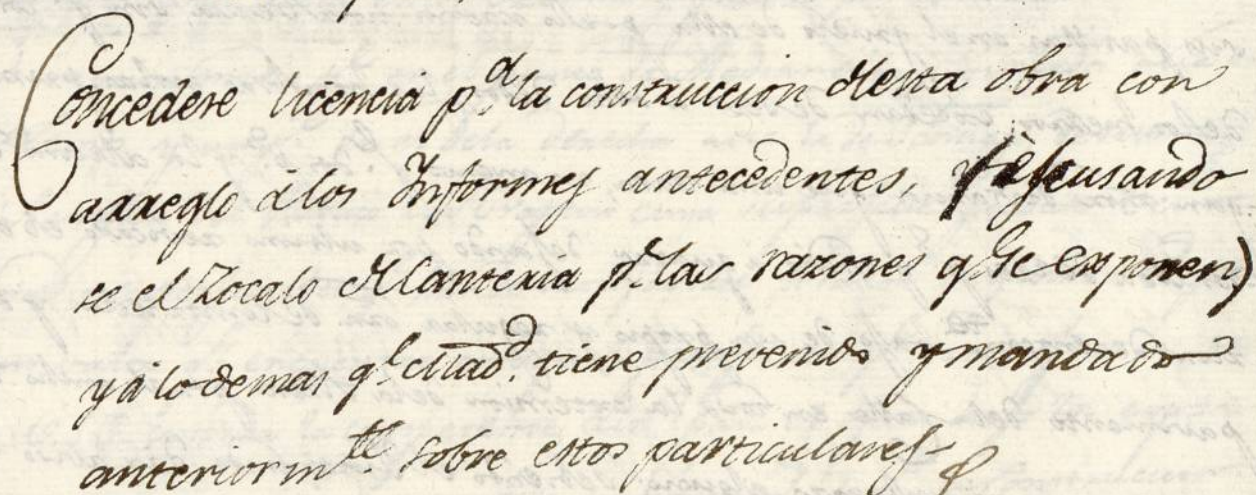 Concedese licencia p.ª la construccion desta obra con
arreglo á los Informes antecedentes, escusando
se el Zocalo de Canteria p.r las razones q.e se exponen)
y á lo demas q.e Mad.d tiene prevenido y mandado
anteriorm.te sobre estos particulares